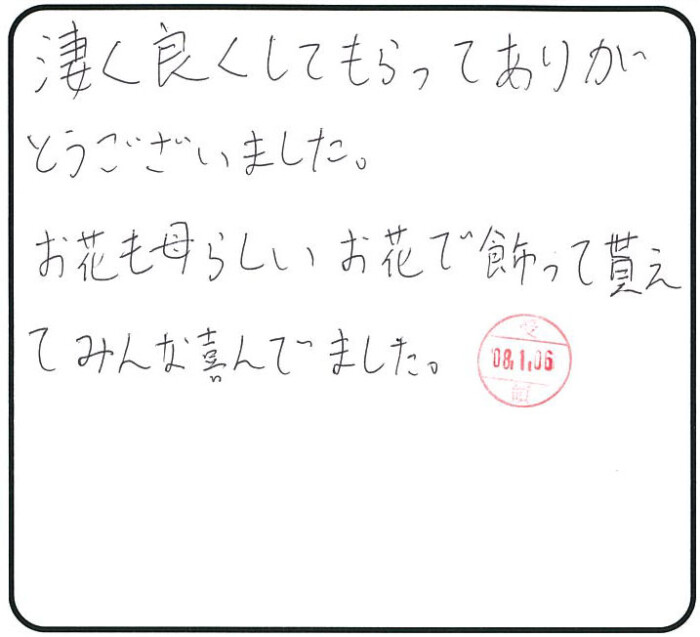 凄く良くしてもらってありが
とうございました。
お花も母らしいお花で飾って貰え
てみんな喜んでました。
受
'08.1.06
領